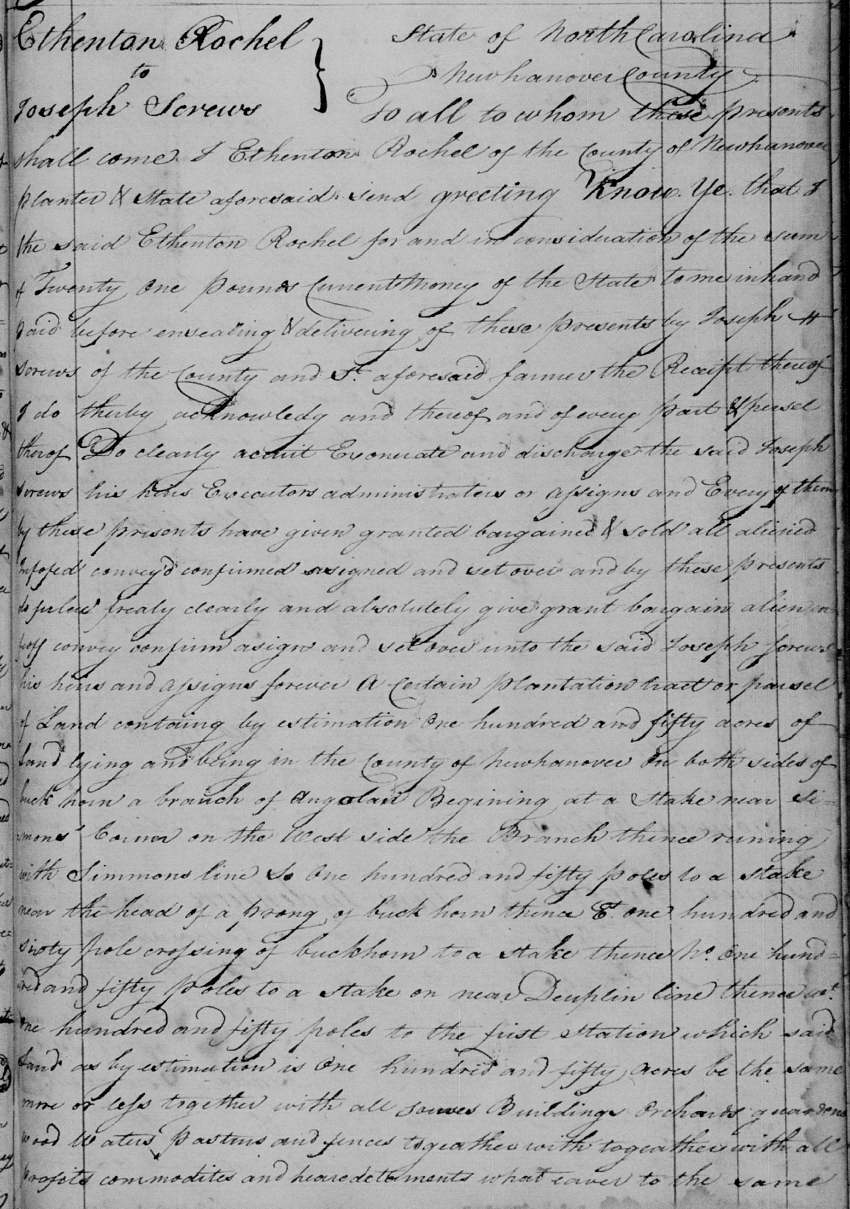 Ethenton Rochel
to
Joseph Screws
State of North Carolina
Newhanover County
To all to whom these presents
shall come I Ethenton Rochel of the County of Newhanover
planter & State aforesaid send greeting Know Ye that I
the said Ethenton Rochel for and in consideration of the sum
of Twenty One pounds Current Money of the State to me in hand
paid before ensealing & delivering of these presents by Joseph
Screws of the County and St. aforesaid farmer the Receipt therof
I do therby acknowledg and therof and of every part & persel
therof Do clearly acquit Exonerate and discharge the said Joseph
Screws his heirs Executors administrators or assigns and Every of them
by these presents have given granted bargained & sold all aliened
Infofed convey'd confirmed assigned and set over and by these presents
do frealy clearly and absolutely give grant bargain alien in=
foff convey confirm asign and set over unto the said Joseph Screws
his heirs and assigns forever A Certain plantation tract or parsel
of Land containg by estimation One hundred and fifty acres of
land lying and being in the County of Newhanover On both sides of
buck horn a branch of Angolan Begining at a Stake near Si=
mmons' Corner on the West side the Branch thence runing
with Simmons line So One hundred and fifty poles to a stake
near the head of a prong of buck horn thence Et. one hundred and
sixty pole crossing of buckhorn to a stake thence No. One hund=
red and fifty Poles to a stake on near Deuplin line thence wt.
One hundred and fifty poles to the first station which said
Land as by estimation is One hundred and fifty acres be the same
more or less together with all houses Buildings Orchards guardens
Wood Waters Pasturs and fences togeather with togeather with all
profets commodites and hearedetements what eaver to the same